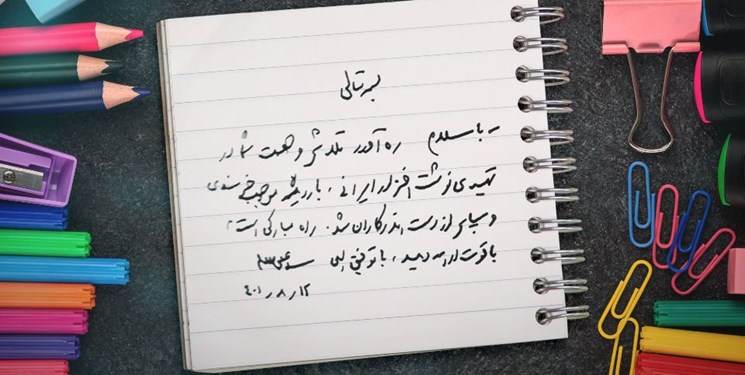 بسمه تعالی
- با سلام ره آورد تلاش و همت شما در
تهیه‌ی نوشت افزار ایرانی، بازدید و موجب خرسندی
و سپاس از دست اندرکاران شد. راه مبارکی است
با قوت ادامه دهید، با توفیق الهی
۱۲ / ۸ / ۴۰۱